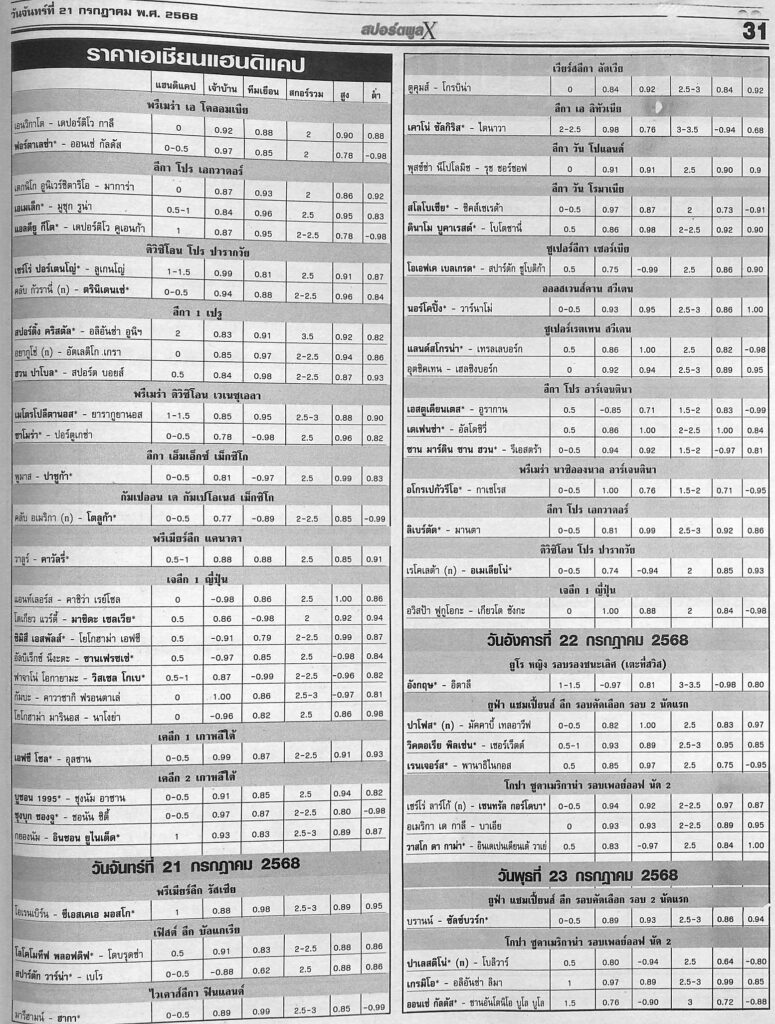 วันจันทร์ที่ 21 กรกฎาคม พ.ศ. 2568
สปอร์ตพูลX
31
ราคาเอเชียนแฮนดิแคป
แฮนดิแคป เจ้าบ้าน ทีมเยือน สกอร์รวม สูง ต่ำ
พรีเมร่า เอ โคลอมเบีย
เอนวิกาโด - เดปอร์ติโว กาลี 0 0.92 0.88 2 0.90 0.88
ฟอร์ตาเลซ่า* - ออนเซ่ กัลดัส 0-0.5 0.97 0.85 2 0.78 -0.98
ลีกา โปร เอกวาดอร์
เตกนิโก อูนิเวร์ซิตาริโอ - มาการ่า 0 0.87 0.93 2 0.86 0.92
เอเมเล็ก* - มูชุก รูน่า 0.5-1 0.84 0.96 2.5 0.95 0.83
แอลดียู กีโต* - เดปอร์ติโว คูเอนก้า 1 0.87 0.95 2-2.5 0.78 -0.98
ดิวิซิโอน โปร ปารากวัย
เซร์โร่ ปอร์เตนโญ่* - ลูเกนโญ่ 1-1.5 0.99 0.81 2.5 0.91 0.87
คลับ กัวรานี่ (n) - ตรินิเดนเซ่* 0-0.5 0.94 0.88 2-2.5 0.96 0.84
ลีกา 1 เปรู
สปอร์ติ้ง คริสตัล* - อลิอันซ่า อูนิฯ 2 0.83 0.91 3.5 0.92 0.82
อยากูโช่ (n) - อัตเลติโก เกรา 0 0.85 0.97 2-2.5 0.94 0.86
ฮวน ปาโบล* - สปอร์ต บอยส์ 0.5 0.84 0.98 2-2.5 0.87 0.93
พรีเมร่า ดิวิซิโอน เวเนซุเอลา
เมโตรโปลีตานอส* - ยารากูยานอส 1-1.5 0.85 0.95 2.5-3 0.88 0.90
ซาโมร่า* - ปอร์ตูเกซ่า 0-0.5 0.78 -0.98 2.5 0.96 0.82
ลีกา เอ็มเอ็กซ์ เม็กซิโก
พูมาส - ปาชูก้า* 0-0.5 0.81 -0.97 2.5 0.99 0.83
กัมเปออน เด กัมเปโอเนส เม็กซิโก
คลับ อเมริกา (n) - โตลูก้า* 0-0.5 0.77 -0.89 2-2.5 0.85 -0.99
พรีเมียร์ลีก แคนาดา
วาลูร์ - คาวัลรี่* 0.5-1 0.88 0.88 2.5 0.85 0.91
เจลีก 1 ญี่ปุ่น
แอนท์เลอร์ส - คาชิว่า เรย์โซล 0 -0.98 0.86 2.5 1.00 0.86
โตเกียว แวร์ดี้ - มาชิดะ เซลเวีย* 0.5 0.86 -0.98 2 0.92 0.94
ชิมิสึ เอสพัลส์* - โยโกฮาม่า เอฟซี 0.5 -0.91 0.79 2-2.5 0.99 0.87
อัลบิเร็กซ์ นีงะตะ - ซานเฟรซเซ่* 0.5 -0.97 0.85 2.5 -0.98 0.84
ฟาจาโน่ โอกายามะ - วิสเซล โกเบ* 0.5-1 0.87 -0.99 2-2.5 -0.96 0.82
กัมบะ - คาวาซากิ ฟรอนตาเล่ 0 1.00 0.86 2.5-3 -0.97 0.81
โยโกฮาม่า มารินอส - นาโงย่า 0 -0.96 0.82 2.5 0.86 0.98
เคลีก 1 เกาหลีใต้
เอฟซี โซล* - อุลซาน 0-0.5 0.99 0.87 2-2.5 0.91 0.93
เคลีก 2 เกาหลีใต้
บูชอน 1995* - ชุงนัม อาซาน 0-0.5 0.91 0.85 2.5 0.94 0.82
ชุงบุก ชองจู* - ชอนัน ซิตี้ 0-0.5 0.97 0.87 2-2.5 0.80 -0.98
กยองนัม - อินชอน ยูไนเต็ด* 1 0.93 0.83 2.5-3 0.89 0.87
วันจันทร์ที่ 21 กรกฎาคม 2568
พรีเมียร์ลีก รัสเซีย
โอเรนเบิร์น - ซีเอสเคเอ มอสโก* 1 0.88 0.98 2.5-3 0.89 0.95
เฟิสต์ ลีก บัลแกเรีย
โลโคโมทีฟ พลอฟดิฟ* - โดบรุดซ่า 0.5 0.91 0.83 2-2.5 0.88 0.86
สปาร์ตัก วาร์น่า* - เบโร 0-0.5 -0.88 0.62 2.5 0.88 0.86
ไวเคาส์ลีกา ฟินแลนด์
มารีฮามน์ - ฮากา* 0-0.5 0.89 0.99 2.5-3 0.85 -0.99
เวียร์สลีกา ลัตเวีย
ตูคุมส์ - โกรบิน่า 0 0.84 0.92 2.5-3 0.84 0.92
ลีกา เอ ลิทัวเนีย
เคาโน่ ซัลกิริส* - ไดนาวา 2-2.5 0.98 0.76 3-3.5 -0.94 0.68
ลีกา วัน โปแลนด์
พุสซ์ซ่า นีโปโลมิซ - รุช ชอร์ซอฟ 0 0.91 0.91 2.5 0.90 0.9
ลีกา วัน โรมาเนีย
สโลโบเซีย* - ซิคส์เซเรด้า 0-0.5 0.97 0.87 2 0.73 -0.91
ดินาโม บูคาเรสต์* - โบโตซานี่ 0.5 0.86 0.98 2-2.5 0.92 0.90
ซูเปอร์ลีกา เซอร์เบีย
โอเอฟเค เบลเกรด* - สปาร์ตัก ซูโบติก้า 0.5 0.75 -0.99 2.5 0.86 0.90
ออลสเวนส์คาน สวีเดน
นอร์โคปิ้ง* - วาร์นาโม่ 0-0.5 0.93 0.95 2.5-3 0.86 1.00
ซูเปอร์เรตเทน สวีเดน
แลนด์สโกรน่า* - เทรลเลบอร์ก 0.5 0.86 1.00 2.5 0.82 -0.98
อุดซิคเทน - เฮลซิงบอร์ก 0 0.92 0.94 2.5-3 0.89 0.95
ลีกา โปร อาร์เจนตินา
เอสตูเดียนเตส* - อูรากาน 0.5 -0.85 0.71 1.5-2 0.83 -0.99
เดเฟนซ่า* - อัลโดซิวี่ 0.5 0.86 1.00 2-2.5 1.00 0.84
ซาน มาร์ติน ซาน ฮวน* - รีเอสตร้า 0-0.5 0.94 0.92 1.5-2 -0.97 0.81
พรีเมร่า นาซิอองนาล อาร์เจนตินา
อโกรเปกัวรีโอ* - กาเซโรส 0-0.5 1.00 0.76 1.5-2 0.71 -0.95
ลีกา โปร เอกวาดอร์
ลิเบร์ตัด* - มานตา 0-0.5 0.81 0.99 2.5-3 0.92 0.86
ดิวิซิโอน โปร ปารากวัย
เรโคเลต้า (n) - อเมเลียโน่* 0-0.5 0.74 -0.94 2 0.85 0.93
เจลีก 1 ญี่ปุ่น
อวิสป้า ฟูกูโอกะ - เกียวโต ซังกะ 0 1.00 0.88 2 0.84 -0.98
วันอังคารที่ 22 กรกฎาคม 2568
ยูโร หญิง รอบรองชนะเลิศ (เตะที่สวิส)
อังกฤษ* - อิตาลี 1-1.5 -0.97 0.81 3-3.5 -0.98 0.80
ยูฟ่า แชมเปี้ยนส์ ลีก รอบคัดเลือก รอบ 2 นัดแรก
ปาโฟส* (n) - มัคคาบี้ เทลอาวีฟ 0-0.5 0.82 1.00 2.5 0.83 0.97
วิคตอเรีย พิลเซ่น* - เซอร์เว็ตต์ 0.5-1 0.93 0.89 2.5-3 0.95 0.85
เรนเจอร์ส* - พานาธิไนกอส 0.5 0.85 0.97 2.5 0.75 -0.95
โกปา ซูดาเมริกาน่า รอบเพลย์ออฟ นัด 2
เซร์โร่ ลาร์โก้ (n) - เซนทรัล กอร์โดบา* 0-0.5 0.94 0.92 2-2.5 0.97 0.87
อเมริกา เด กาลี - บาเอีย 0 0.93 0.93 2-2.5 0.89 0.95
วาสโก ดา กาม่า* - อินเดเปนเดียนเต้ วาเย่ 0.5 0.83 -0.97 2.5 0.84 1.00
วันพุธที่ 23 กรกฎาคม 2568
ยูฟ่า แชมเปี้ยนส์ ลีก รอบคัดเลือก รอบ 2 นัดแรก
บรานน์ - ซัลซ์บวร์ก* 0-0.5 0.89 0.93 2.5-3 0.86 0.94
โกปา ซูดาเมริกาน่า รอบเพลย์ออฟ นัด 2
ปาเลสติโน่* (n) - โบลิวาร์ 0.5 0.80 -0.94 2.5 0.64 -0.80
เกรมิโอ* - อลิอันซ่า ลิมา 1 0.97 0.89 2.5-3 0.99 0.85
ออนเซ่ กัลดัส* - ซานอันโตนิโอ บูโล บูโล 1.5 0.76 -0.90 3 0.72 -0.88